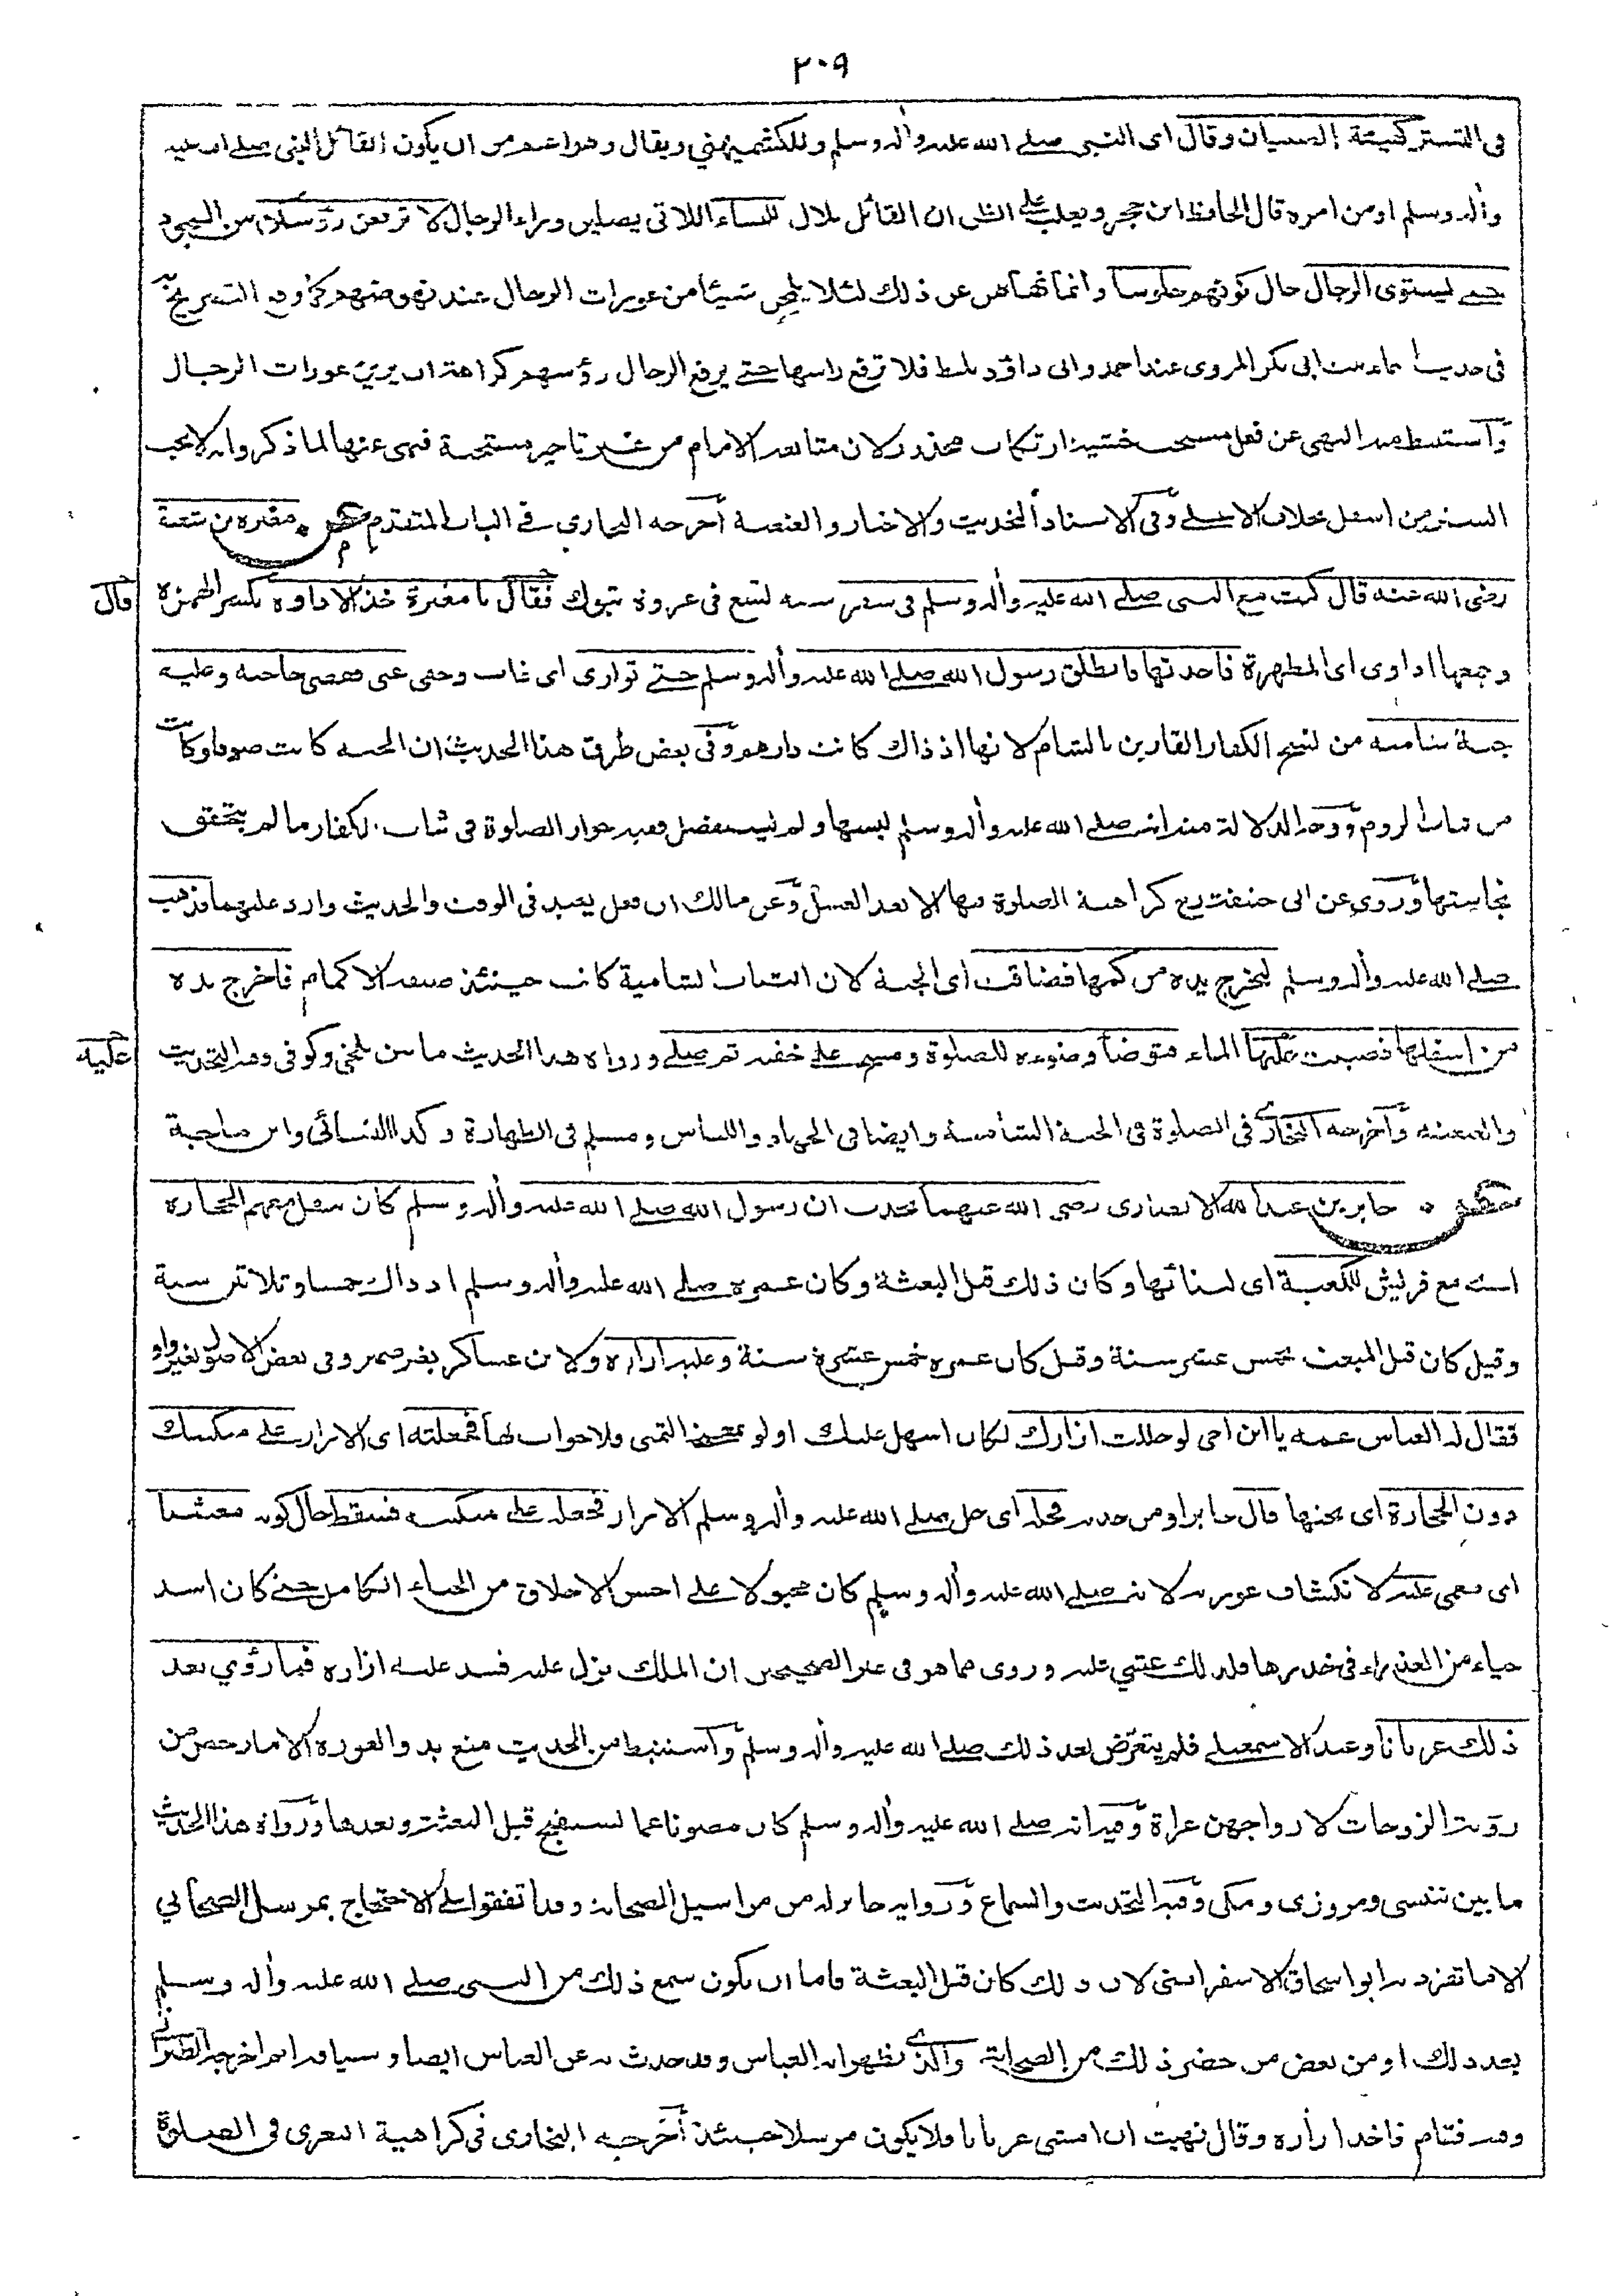 ٢٠٩
فى التستر كهيئة الصبيان وقال اى النبى صلى الله عليه وأله وسلم وللكشميهني ويقال وهو اعم من ان يكون القائل النبى صلى الله عليه
وأله وسلم او من امره قال الحافظ ابن حجر ويغلب على الظن ان القائل بلال للنساء اللاتى يصلين وراء الرجال لا ترفعن رؤسكن من السجود
حتى يستوى الرجال حال كونهم جلوسا وانما نهاهن عن ذلك لئلا يلمحن شيئا من عورات الرجال عند نهوضهم كما وقع التصريح به
فى حديث اسماء بنت ابى بكر المروى عند احمد وابى داؤد بلفظ فلا ترفع راسها حتى يرفع الرجال رؤسهم كراهة ان يرين عورات الرجال
وآستنبط منه النهى عن فعل مستحب خشية ارتكاب محذور لان متابعة الامام من غير تاخير مستحبة فنهى عنها لما ذكر وانه لا يجب
الستر من اسفل بخلاف الاعلى وفى الاسناد التحديث والاخبار والعنعنة أخرجه البخارى فى الباب المتقدم مغيرة بن شعبة
رضى الله عنه قال كنت مع النبى صلى الله عليه وأله وسلم فى سفر سنة تسع فى غزوة تبوك فقال يا مغيرة خذ الاداوة بكسر الهمزة
قال
وجمعها اداوى اى المطهرة فاخذتها فانطلق رسول الله صلى الله عليه وأله وسلم حتى توارى اى غاب وخفى عنى فقضى حاجته وعليه
جبة شامية من نسج الكفار القارين بالشام لانها اذ ذاك كانت دارهم وفى بعض طرق هذا الحديث ان الجبة كانت صوفا وكانت
من ثياب الروم ووجه الدلالة منه انه صلى الله عليه وأله وسلم لبسها ولم يستفصل ففيه جواز الصلوة فى ثياب الكفار ما لم يتحقق
نجاستها وروى عن ابى حنيفة رح كراهية الصلوة فيها الا بعد الغسل وعن مالك ان فعل يعيد فى الوقت والحديث وارد عليهما فذهب
صلى الله عليه وأله وسلم ليخرج يده من كمها فضاقت اى الجبة لان الثياب الشامية كانت حينئذ ضيقة الاكمام فاخرج يده
من اسفلها فصببت عليه الماء فتوضأ وضوءه للصلوة ومسح على خفيه ثم صلى ورواة هذا الحديث ما بين بلخى وكوفى وفيه التحديث
عليه
والعنعنة وآخرجه البخارى فى الصلوة فى الجبة الشامية وايضا فى الجهاد واللباس ومسلم فى الطهارة وكذا النسائى وابن ماجة
جابر بن عبد الله الانصارى رضى الله عنهما يحدث ان رسول الله صلى الله عليه وأله وسلم كان ينقل معهم الحجارة
اى مع قريش للكعبة اى لبنائها وكان ذلك قبل البعثة وكان عمره صلى الله عليه وأله وسلم اذ ذاك خمسا وثلاثين سنة
وقيل كان قبل المبعث بخمس عشر سنة وقيل كان عمره خمس عشرة سنة وعليه ازاره ولابن عساكر بغير ضمير وفى بعض الاصول بغير واو
فقال له العباس عمه يا ابن اخى لو حللت ازارك لكان اسهل عليك او لو بمعنى التمنى ولا جواب لها فجعلته اى الازار على منكبيك
دون الحجارة اى تحتها قال جابر او من حدثه فحله اى حل صلى الله عليه وأله وسلم الازار فجعله على منكبيه فسقط حال كونه مغشيا
اى مغمى عليه لانكشاف عورته لانه صلى الله عليه وأله وسلم كان مجبولا على احسن الاخلاق من الحياء الكامل حتى كان اشد
حياء من العذراء فى خدرها فلذلك غشي عليه وروى مما هو فى غير الصحيحين ان الملك نزل عليه فشد عليه ازاره فما رؤي بعد
ذلك عريانا وعند الاسمعيلى فلم يتعرّض بعد ذلك صلى الله عليه وأله وسلم وآستنبط من الحديث منع بدو العورة الا ما رخص من
رؤية الزوجات لازواجهن عراة وفيه انه صلى الله عليه وأله وسلم كان مصونا عما يستقبح قبل البعثة وبعدها ورواة هذا الحديث
ما بين تنيسى ومروزى ومكى وفيه التحديث والسماع ورواية جابر له من مراسيل الصحابة وقد اتفقوا على الاحتجاج بمرسل الصحابي
الا ما تفرد به ابو اسحاق الاسفراينى لان ذلك كان قبل البعثة فاما ان يكون سمع ذلك من النبى صلى الله عليه وأله وسلم
بعد ذلك او من بعض من حضر ذلك من الصحابة والذى يظهر انه العباس وقد حدث به عن العباس ايضا وسياقه اتم اخرجه الطبرانى
وفيه فقام فاخذ ازاره وقال نهيت ان امشى عريانا فلا يكون مرسلا حينئذ أخرجه البخارى فى كراهية التعرى فى الصلوة